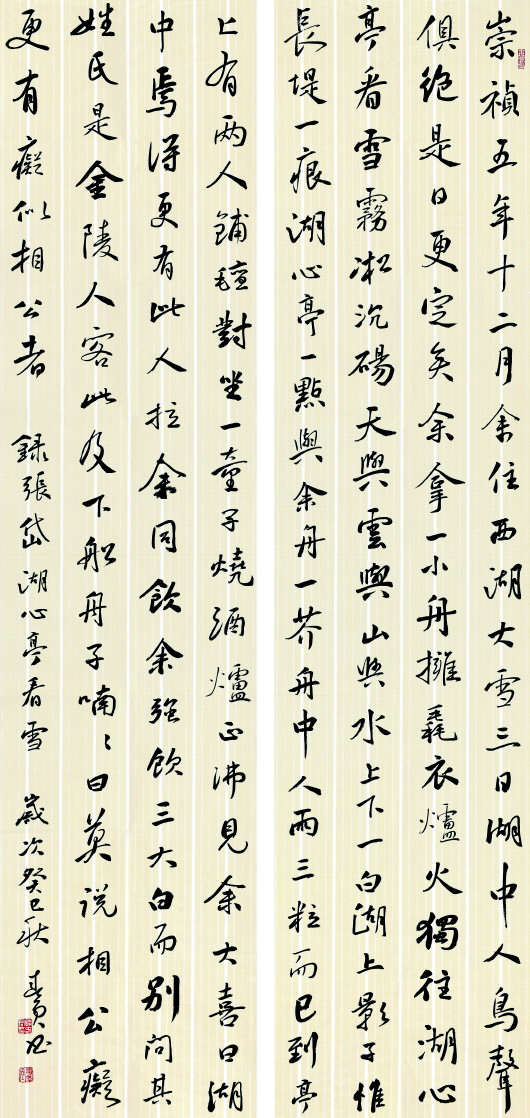 崇禎五年十二月余住西湖大雪三日湖中人鳥聲
俱絕是日更定矣余拿一小舟擁毳衣爐火獨往湖心
亭看雪霧凇沆碭天與雲與山與水上下一白湖上影子惟
長堤一痕湖心亭一點與余舟一芥舟中人兩三粒而已到亭
上有兩人鋪氈對坐一童子燒酒爐正沸見余大喜曰湖
中焉得更有此人拉余同飲余強飲三大白而別問其
姓氏是金陵人客此及下船舟子喃〻曰莫說相公癡
更有癡似相公者 錄張岱湖心亭看雪 歲次癸巳秋